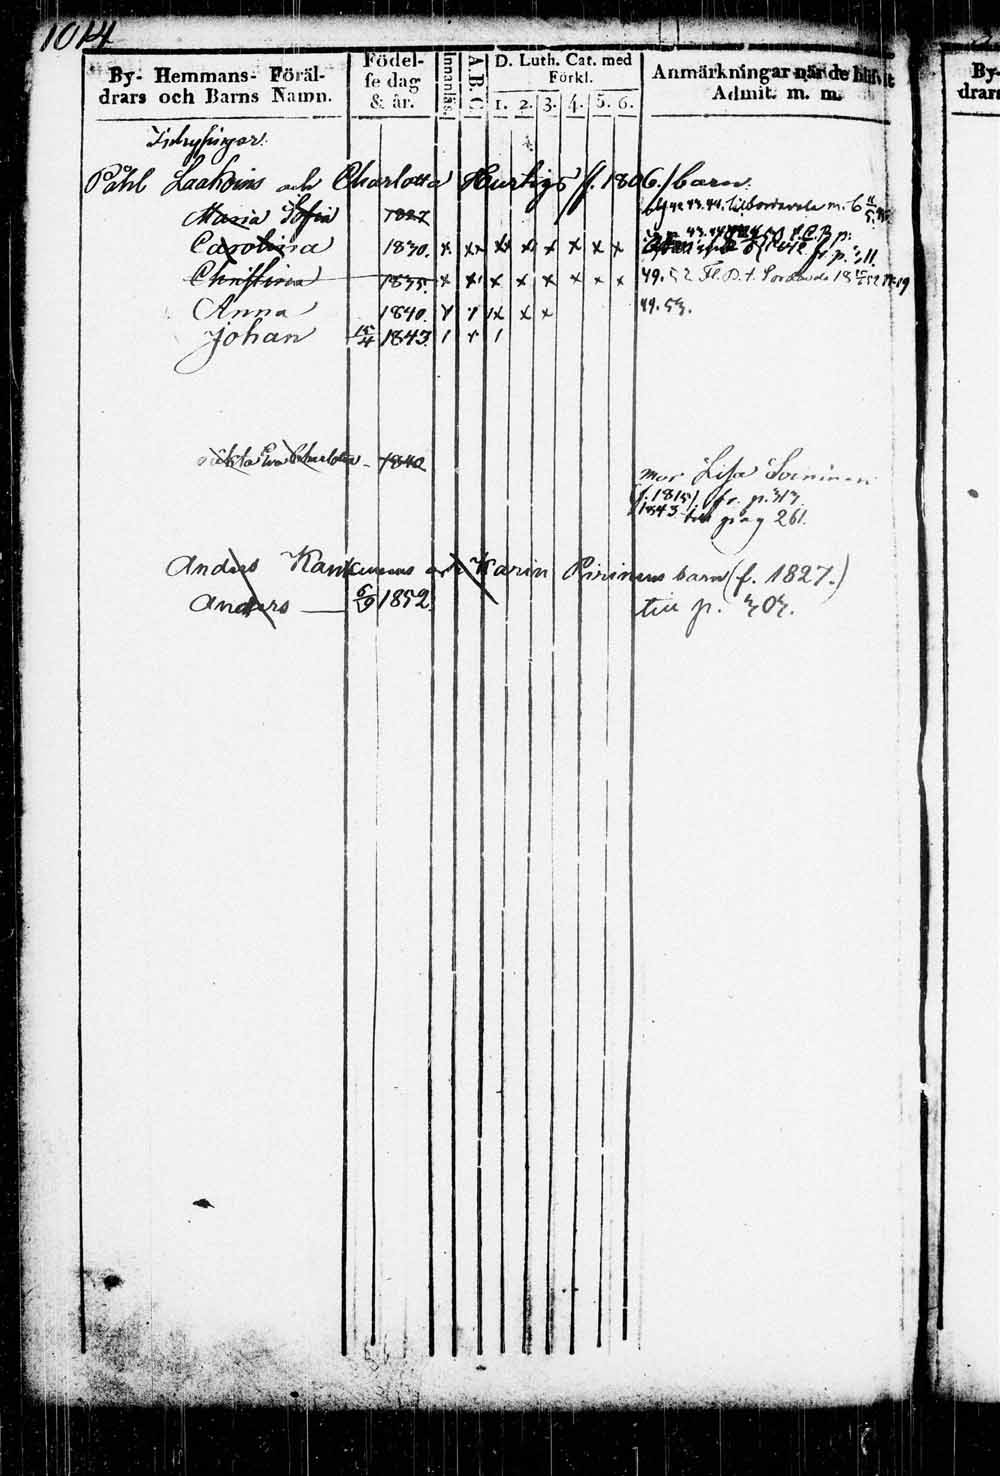 1014
By- Hemmans- Föräl-
drars och Barns Namn.
Födel-
se dag
& år.
Innanläs.
A.B.C.
D. Luth. Cat. med
Förkl.
1. 2. 3. 4. 5. 6.
Anmärkningar när de blifvit
Admit. m. m.
By-
drars
Påhl Laakoins och Charlotta Hurtigs f. 1806./barn.
Maria Sofia 1827 43.44. m. 6 11/5
Carolina 1830. x xx x x x x x x 43.44 p. 11.
Christina 1835. x x x x x x x x 49. 52 18 52
Anna 1840. x x x x 49. 53.
Johan 15/4 1843.
Eva Charlotta - 1840
mor Lisa Soininen
f. 1815/ fr. p. 313.
1843 till pag 261.
Anders Kankunens och Karin Pirinens barn (f. 1827.)
Anders — 6/9 1852. till p. 303.